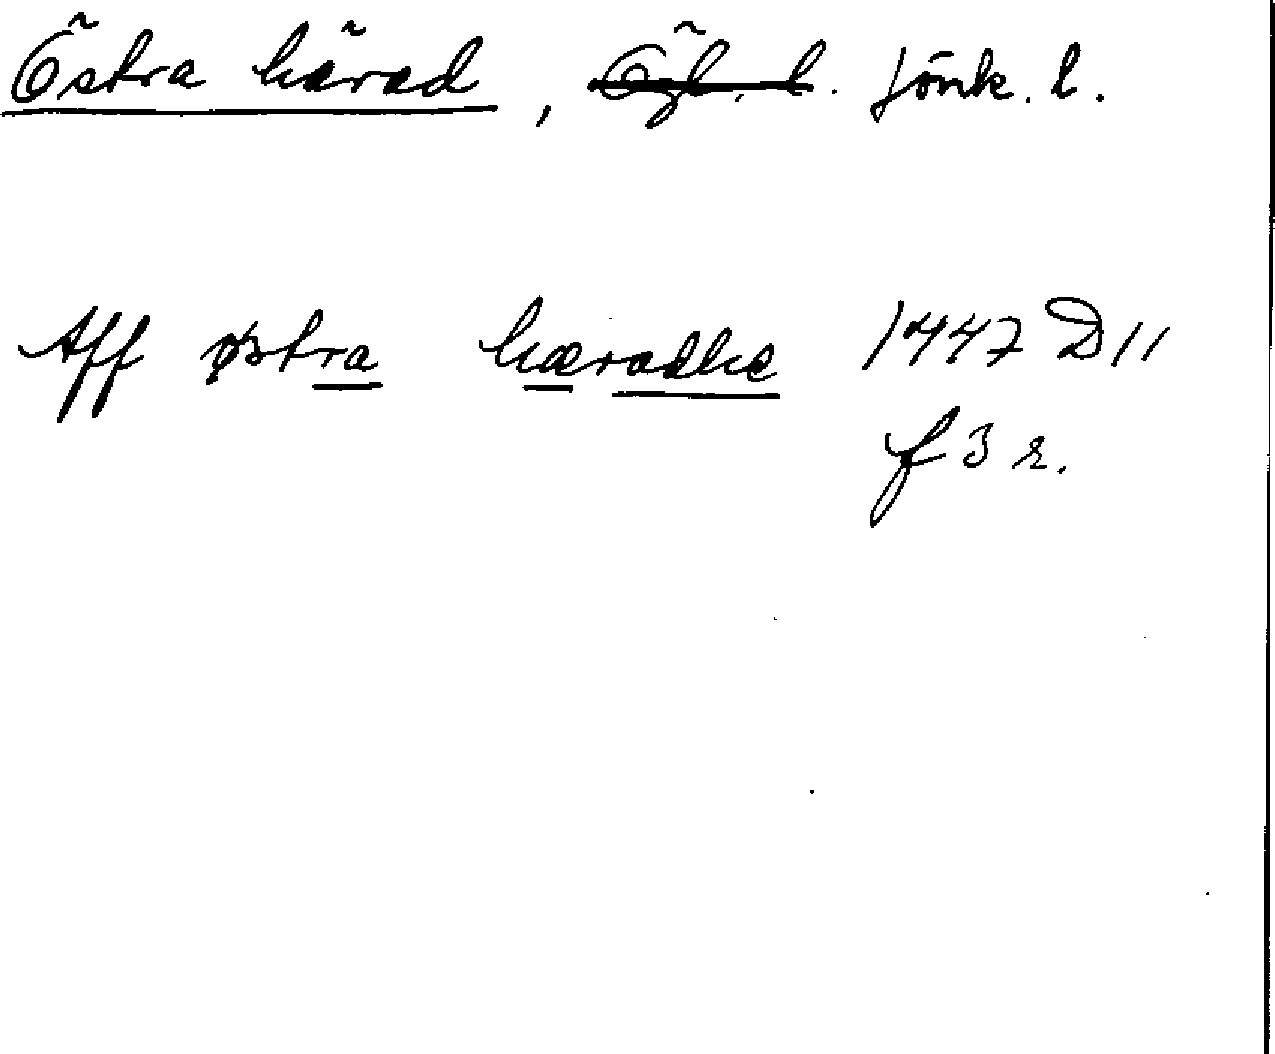 Östra härad, Ögl. l. Jönk. l.
Aff østra hæradhe 1447 D 11
f 3 r.